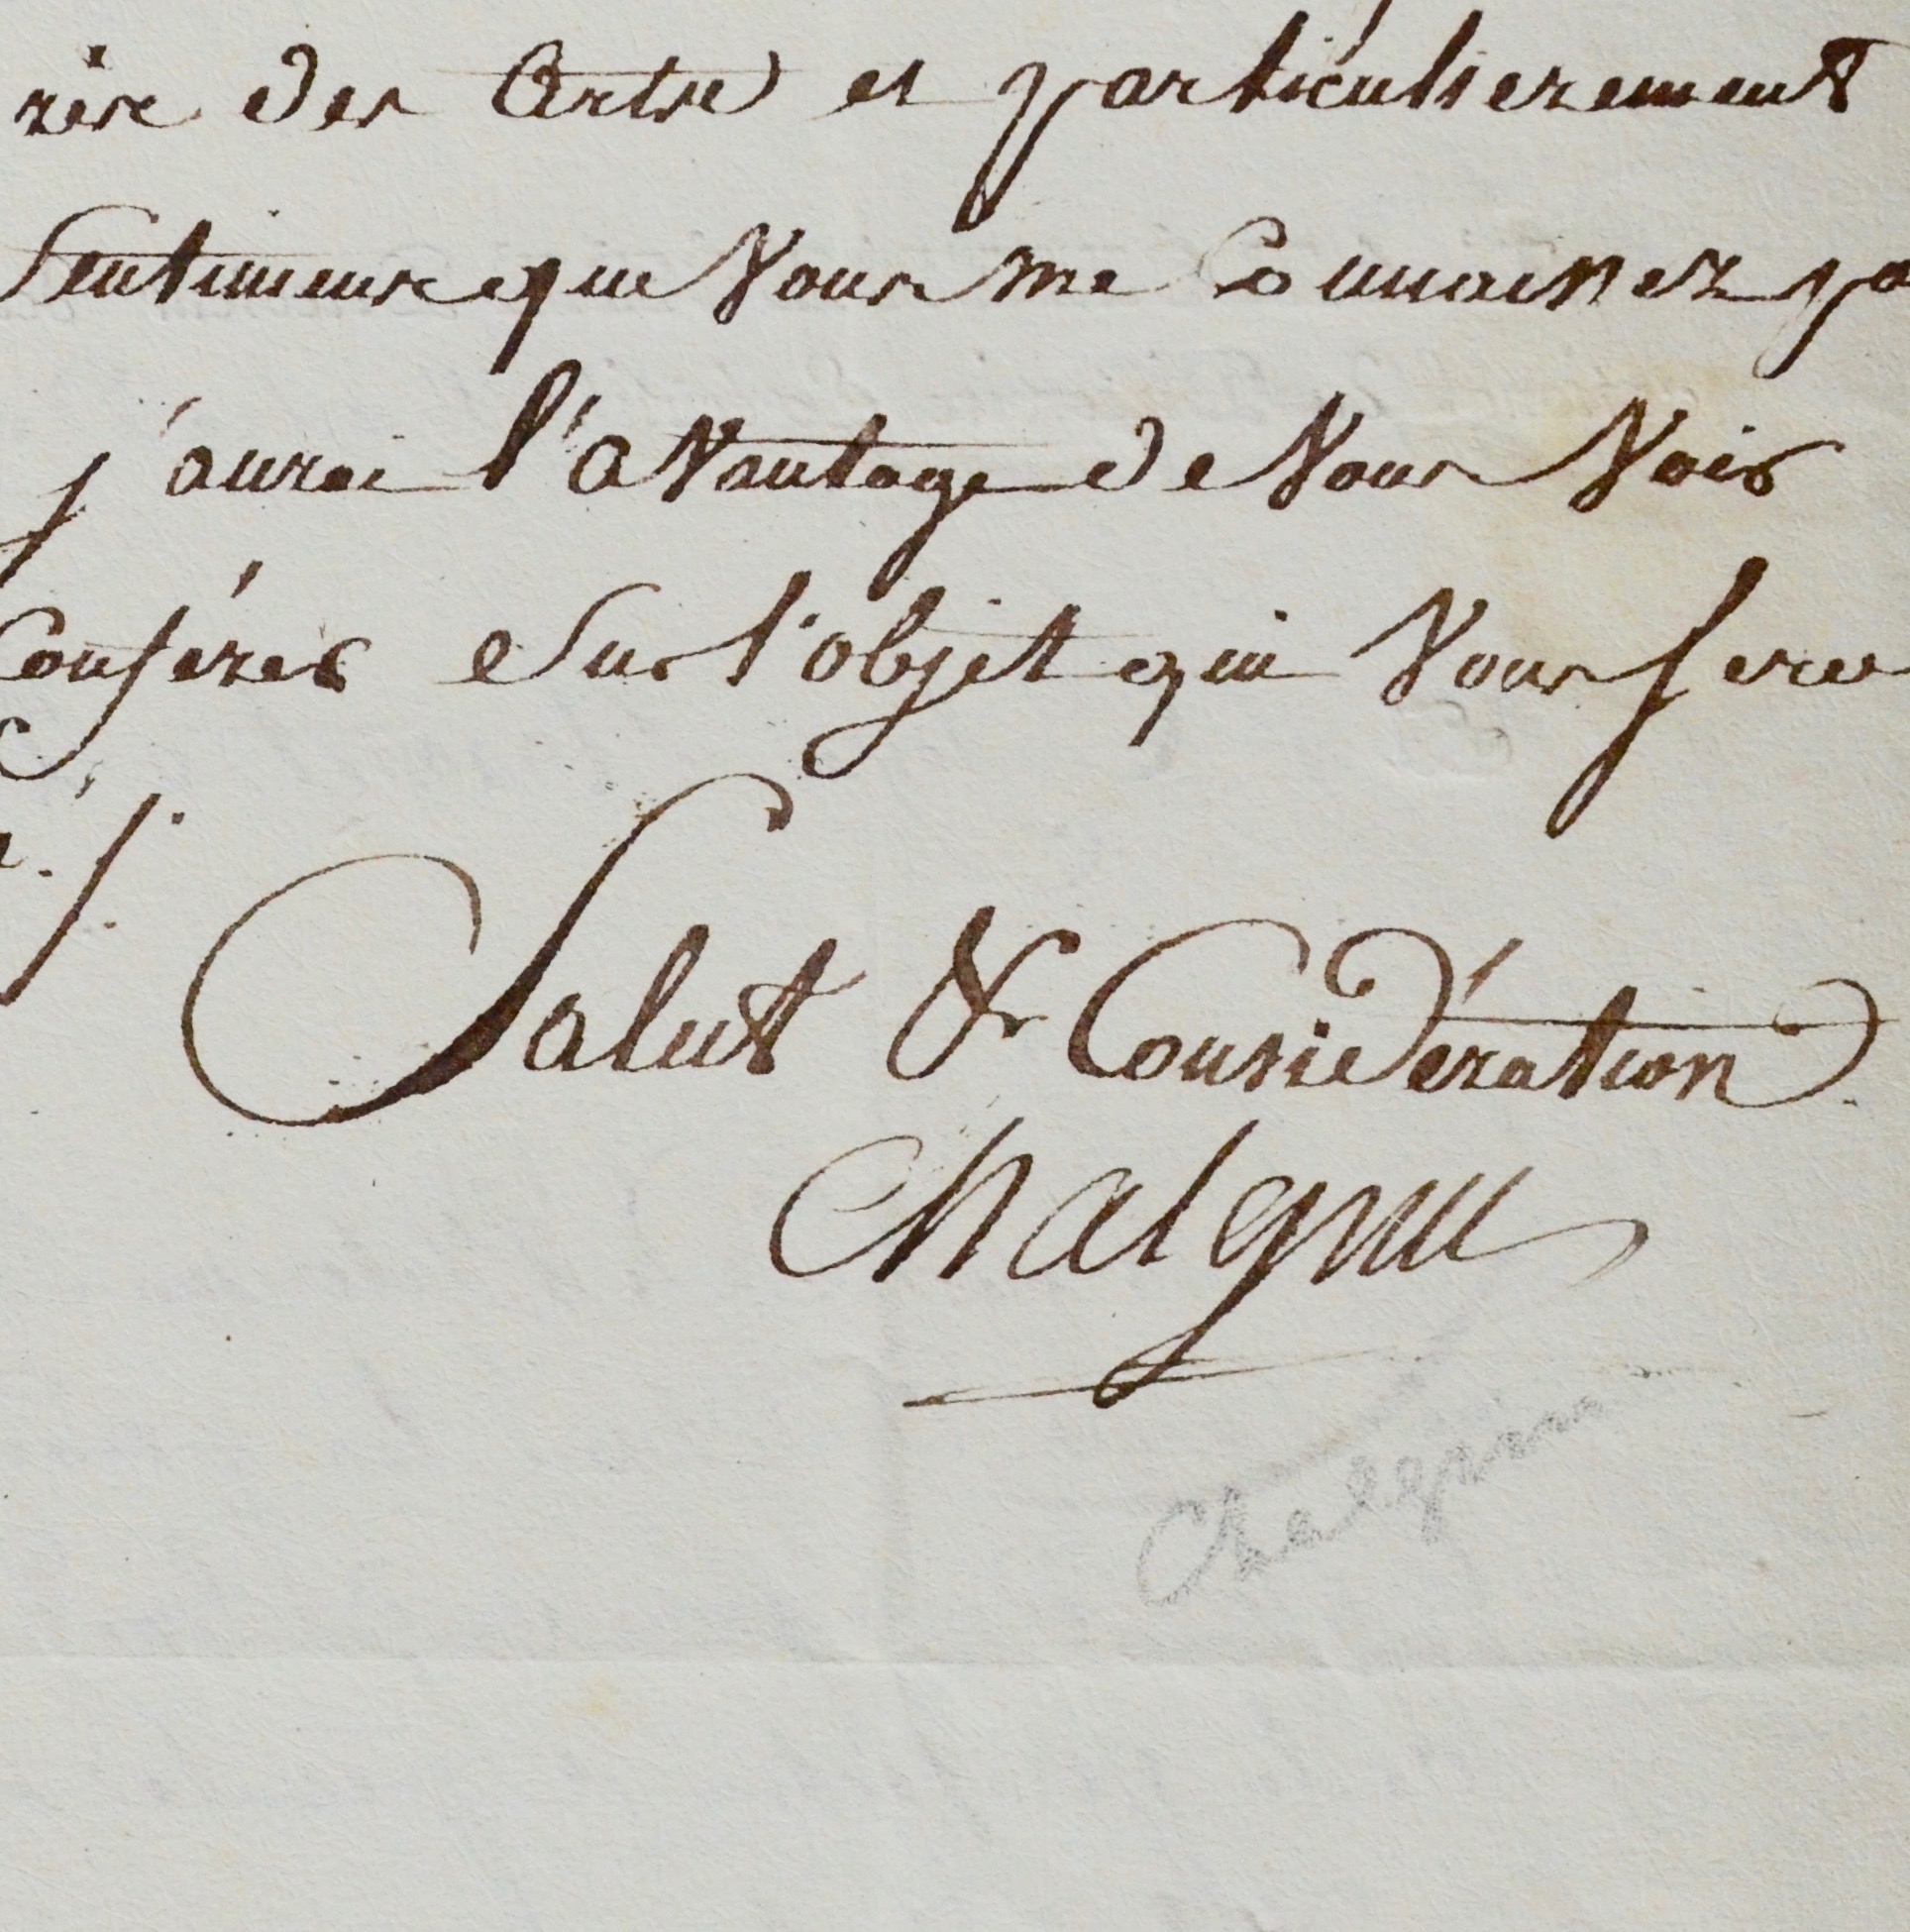 des Arts et particulierement
Sentimens que Vous me Connaissez
j'aurai l'aVantage de Vous Voir
Conférer Sur l'objet qui Vous sera
Salut & Considération
Chalgrin
Chalgrin